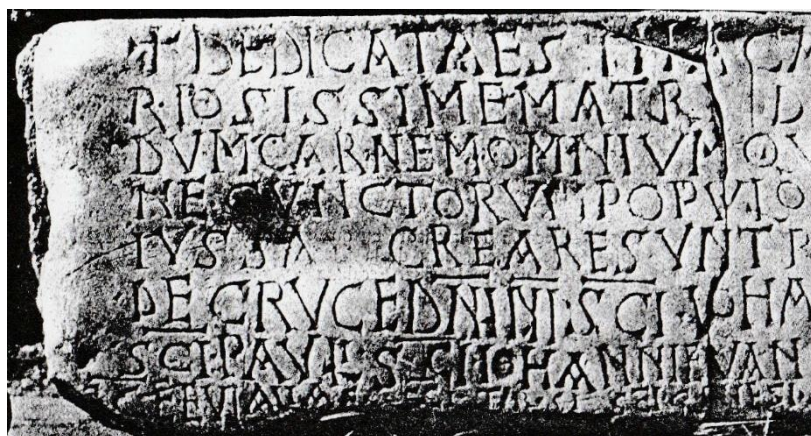 + DEDICATA ES
RIOSISSIME MATR D
DVM CARNEM OMNIVM QV
NE CVNCTORVM POPVLO
IVSSA CREARE SVNT
DE CRVCE DNI NI SCI IOHA
SCI PAVLI SCI IOHANNI EVAN